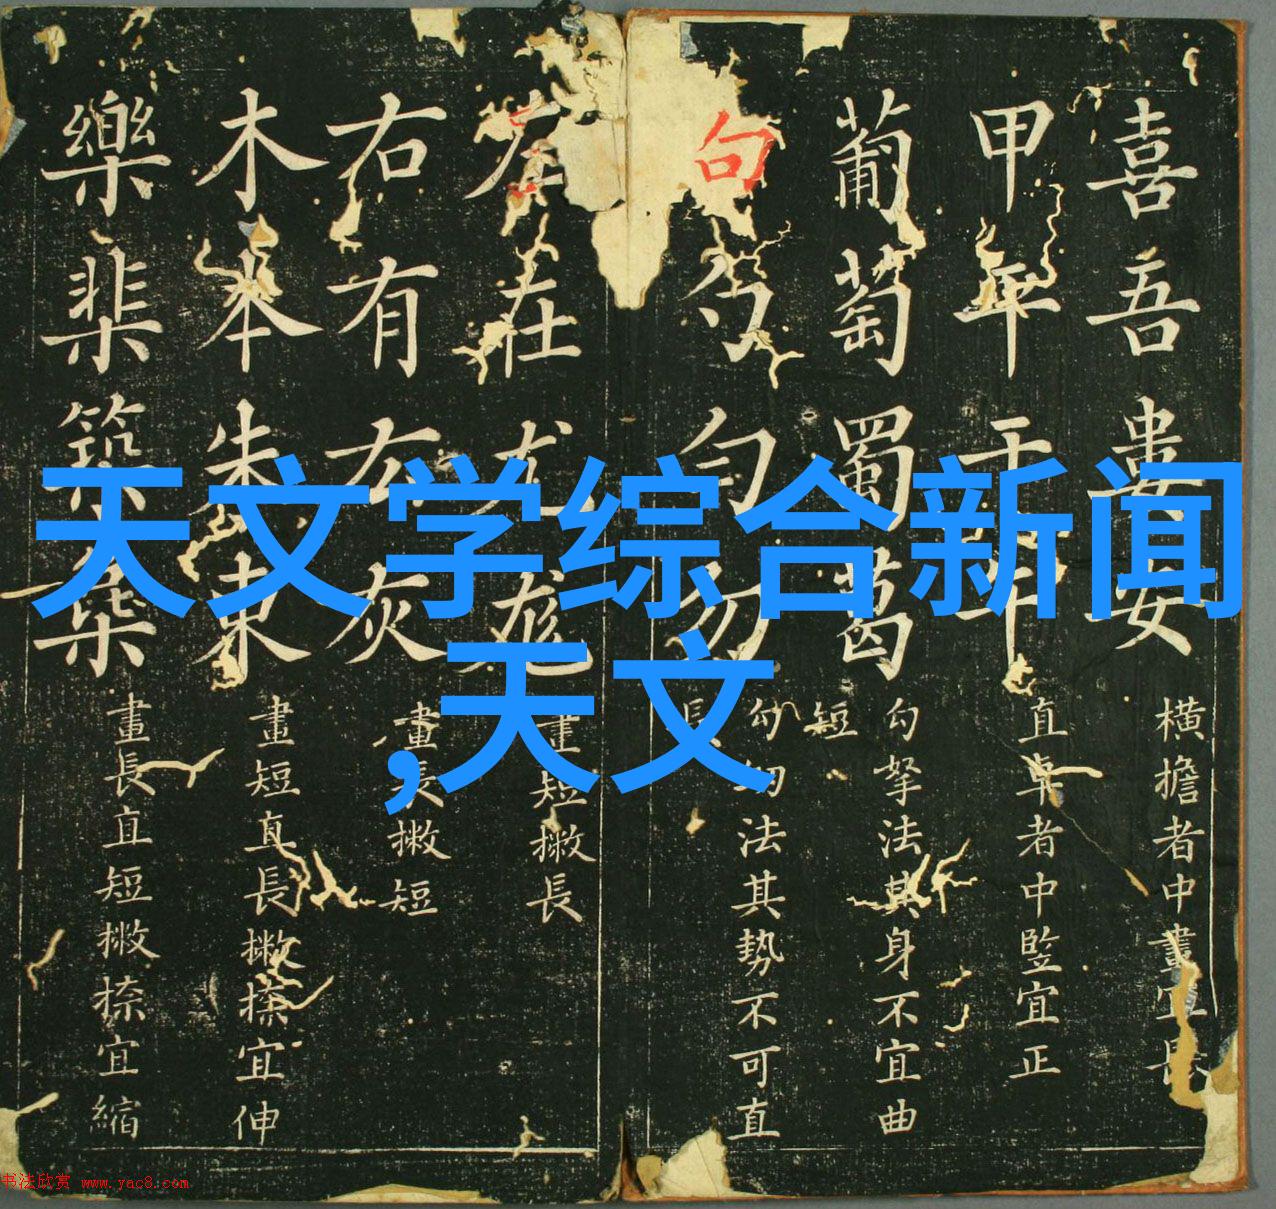 天文学综合新闻
,天文
喜吾婁安
橫擔者中畫宜
甲平干午
直卓者中竪宜正
葡萄蜀葛
勾拏法其身不宜曲
短
句勺勻勿
勾法其勢不可直
左在尤尨
畫短撇長
右有厷灰
畫長撇短
木本朱東
畫短直長撇捺宜伸
樂棐築
畫長直短撇捺宜縮
书法欣赏 www.yac8.com